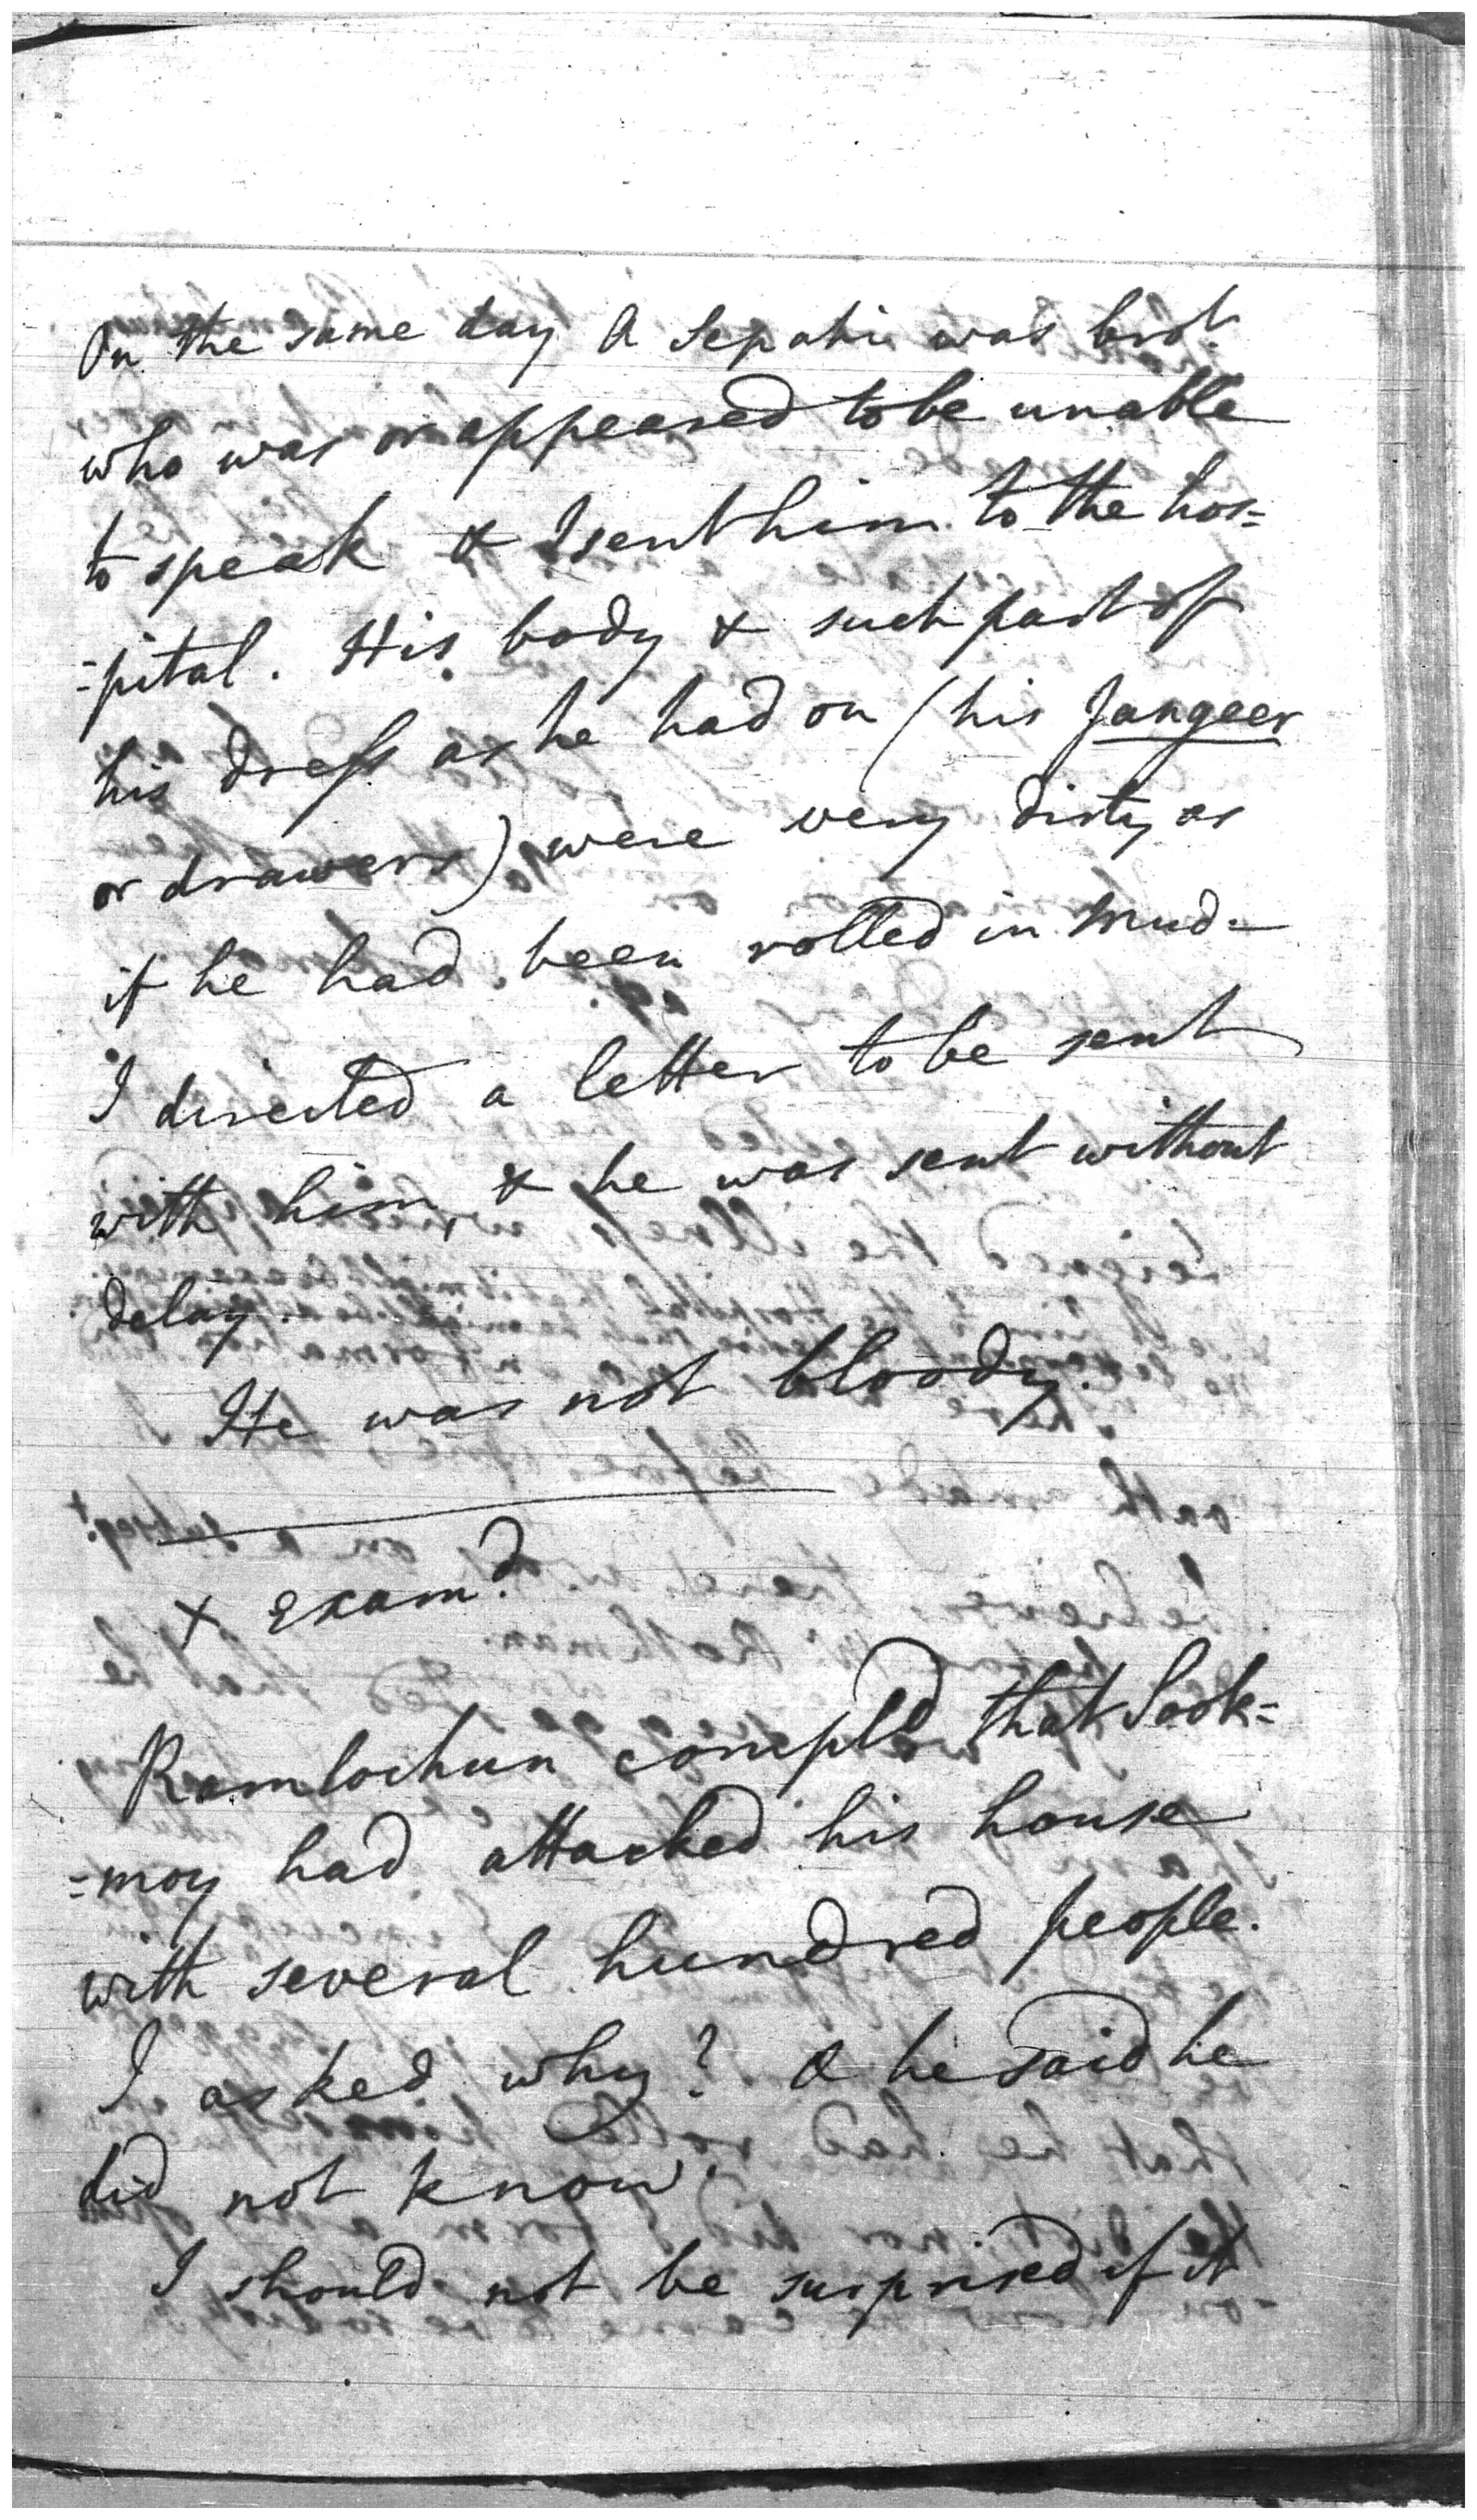 On the same day A Sepahi was brot.
who was or appeared to be unable
to speak & I sent him to the hos=
=pital. His body & such part of
his dress as he had on (his Jangeer
or drawers) were very dirty as
if he had been rolled in mud.
I directed a letter to be sent
with him, & he was sent without
delay.
He was not bloody.
x Examd.
Ramlochun compld. that Sook=
=moy had attacked his house
with several hundred people.
I asked why? & he said he
did not know.
I should not be surprised if it